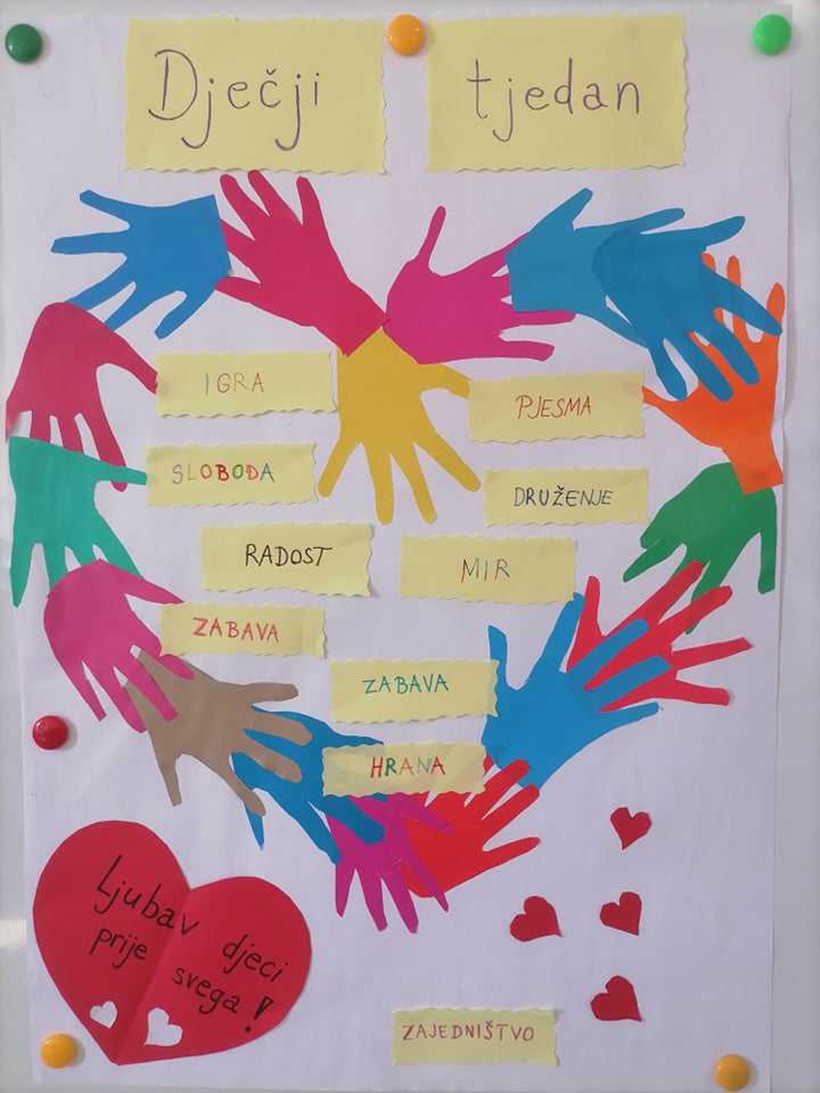 Dječji tjedan
IGRA
PJESMA
SLOBODA
DRUŽENJE
RADOST
MIR
ZABAVA
ZABAVA
HRANA
Ljubav djeci
prije svega!
ZAJEDNIŠTVO